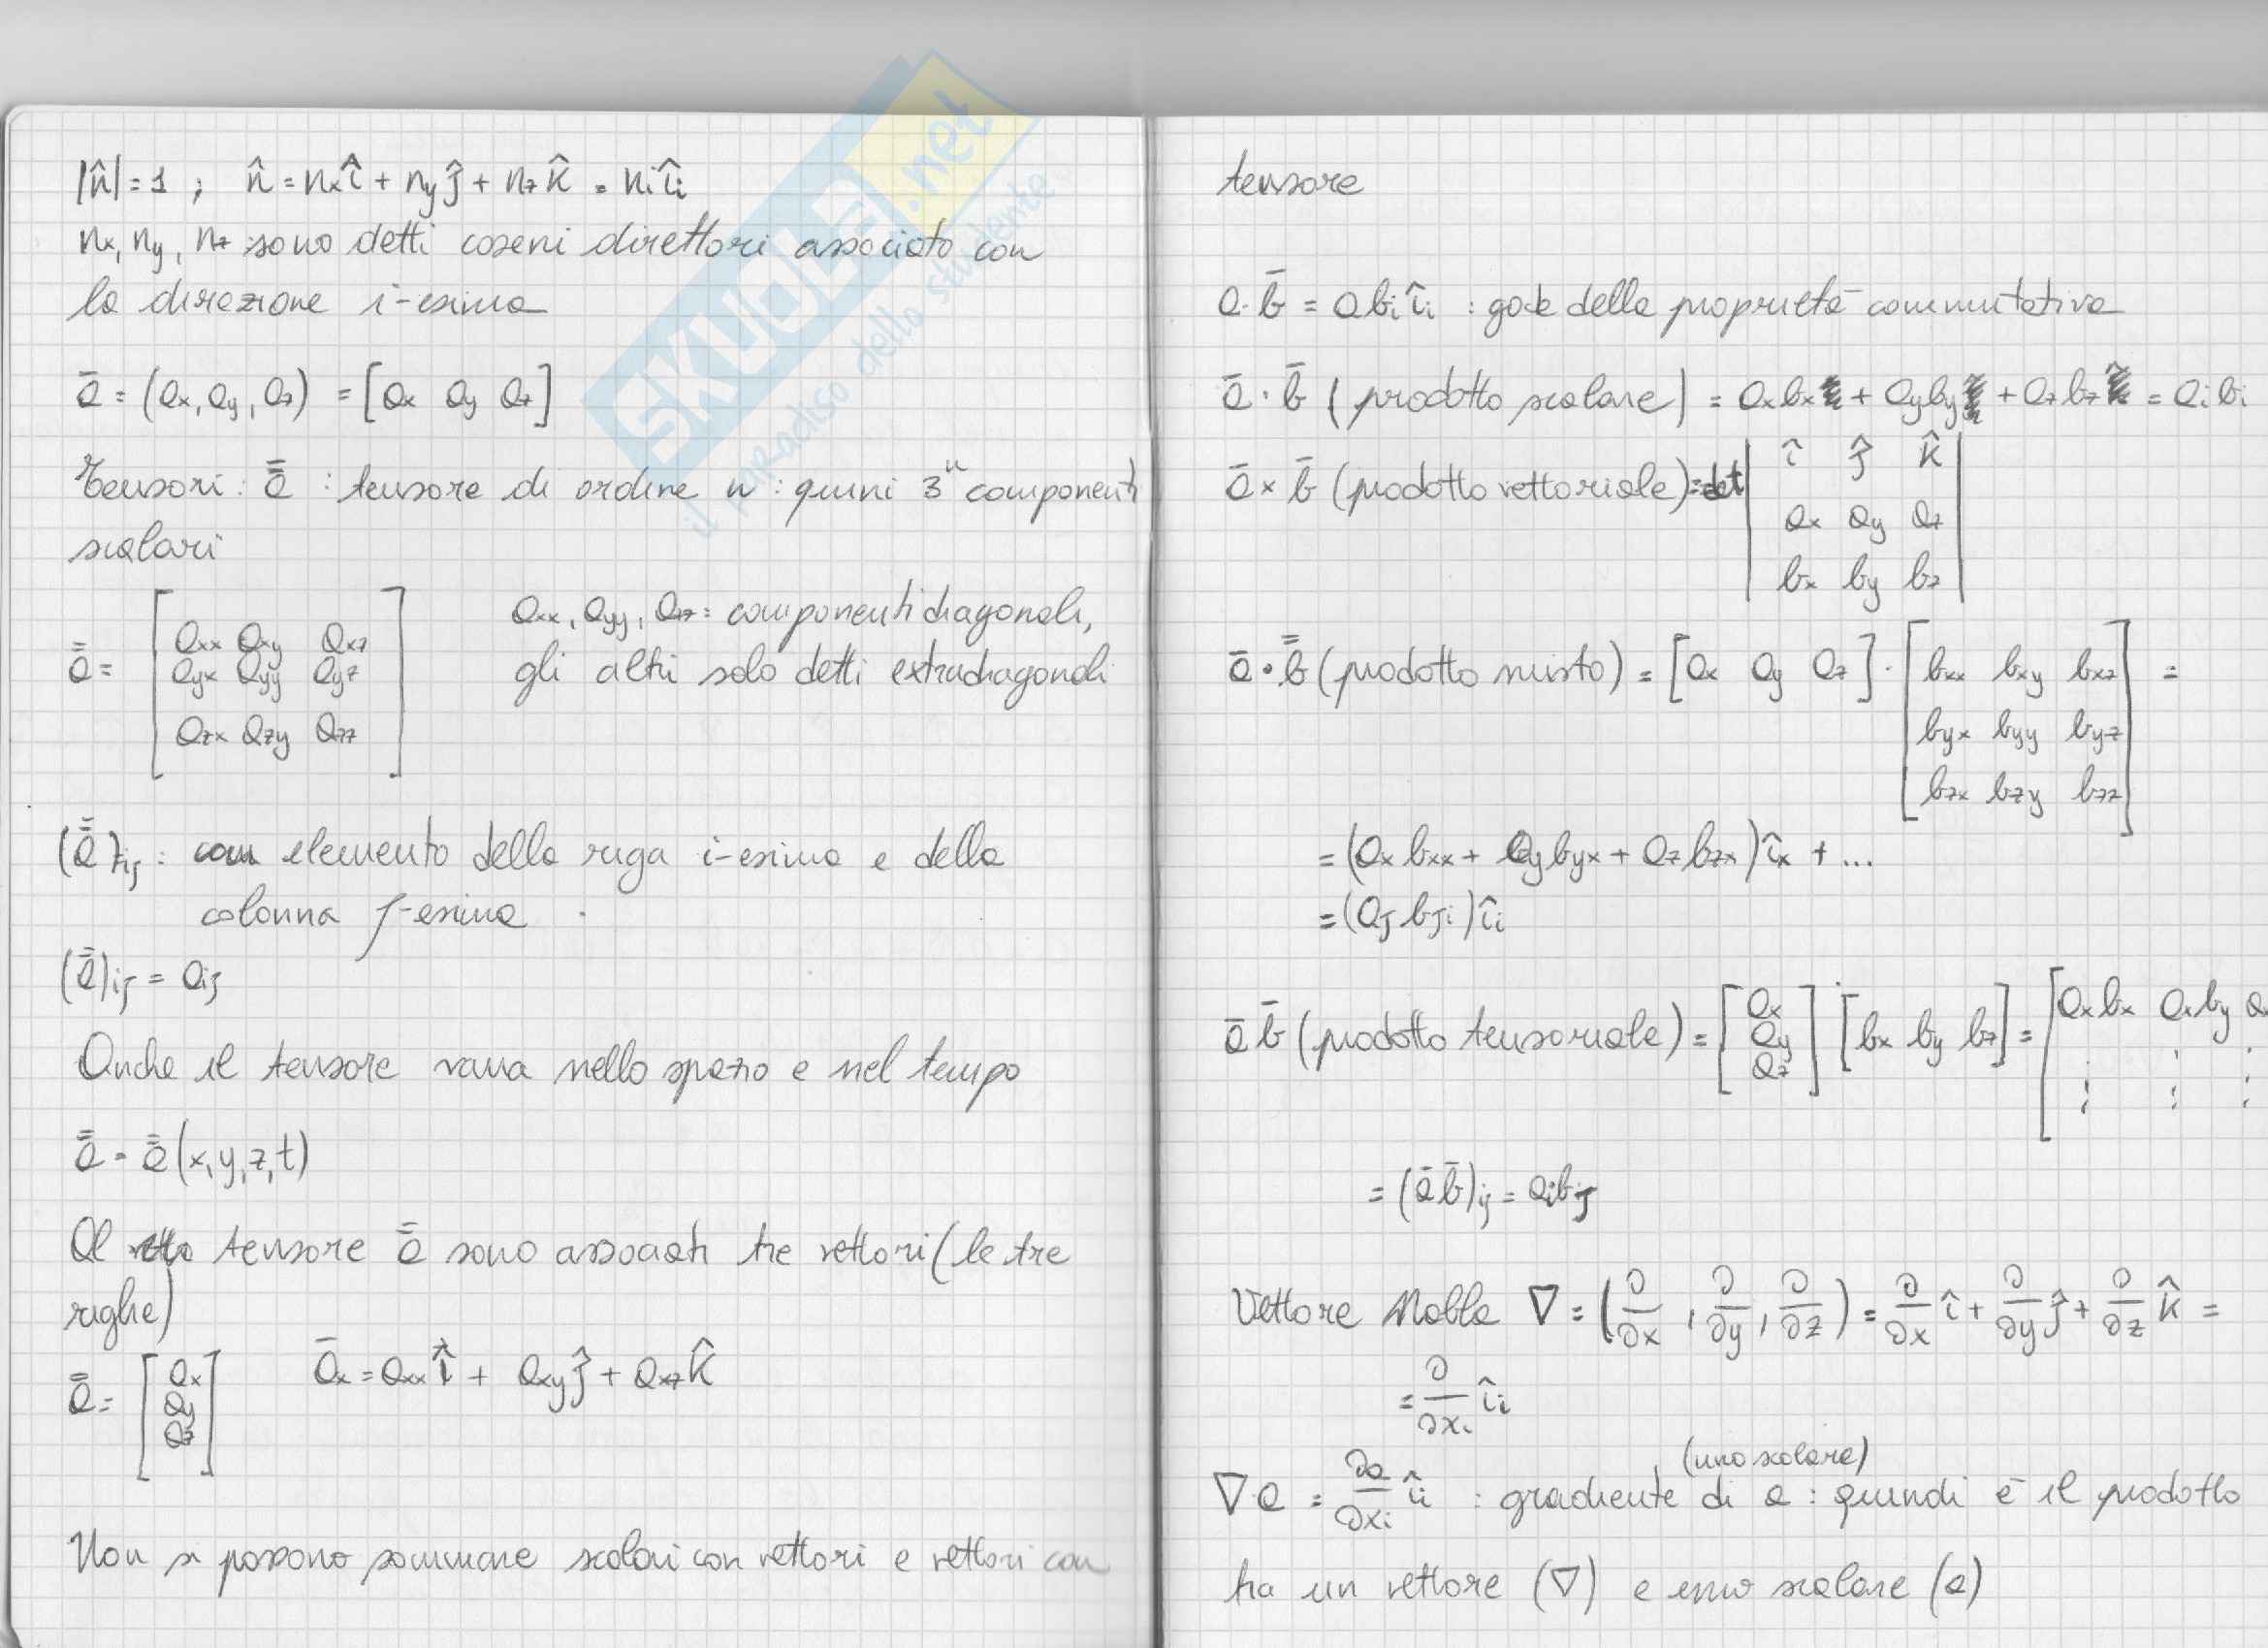 |n̂|=1 ; n̂ = nxî + nyĵ + nzk̂ = niîi
nx, ny, nz sono detti coseni direttori associato con
la direzione i-esima
ā = (ax, ay, az) = [ax ay az]
Tensori: a̿ : tensore di ordine n : quini 3ⁿ componenti
scalari
a̿ = [axx axy axz
ayx ayy ayz
azx azy azz]
axx, ayy, azz: componenti diagonali,
gli altri solo detti extradiagonali
(a̿)ij : elemento della riga i-esima e della
colonna j-esima
(a̿)ij = aij
Anche il tensore varia nello spazio e nel tempo
a̿ = a̿(x,y,z,t)
Al tensore a̿ sono associati tre vettori (le tre
righe)
a̿ = [ax
ay
az]
āx = axxî + axyĵ + axzk̂
Non si possono sommare scalari con vettori e vettori con
tensore
a·b̄ = abiîi : gode della proprietà commutativa
ā·b̄ (prodotto scalare) = axbx + ayby + azbz = aibi
ā×b̄ (prodotto vettoriale) = det | î ĵ k̂
ax ay az
bx by bz |
ā·b̿ (prodotto misto) = [ax ay az] · [bxx bxy bxz
byx byy byz
bzx bzy bzz] =
= (axbxx + aybyx + azbzx)îx + ...
= (ajbji)îi
āb̄ (prodotto tensoriale) = [ax
ay
az] [bx by bz] = [axbx axby a
⋮ ⋮ ⋮
= (āb̄)ij = aibj
Vettore Nabla ∇ = (∂/∂x, ∂/∂y, ∂/∂z) = ∂/∂x î + ∂/∂y ĵ + ∂/∂z k̂ =
= ∂/∂xi îi
(uno scalare)
∇a = ∂a/∂xi îi : gradiente di a : quindi è il prodotto
tra un vettore (∇) e uno scalare (a)
SKUOLA.net
il paradiso dello studente